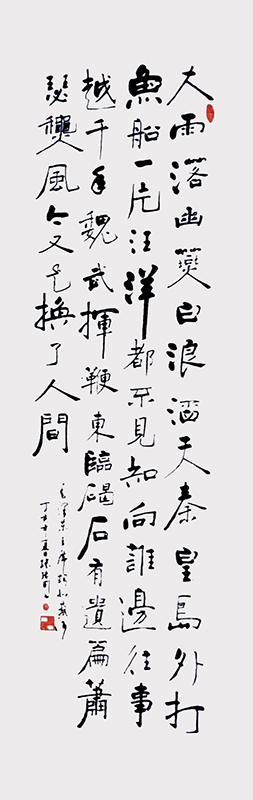 大雨落幽燕白浪滔天秦皇島外打
魚船一片汪洋都不見知向誰邊往事
越千年魏武揮鞭東臨碣石有遺篇蕭
瑟秋風今又是換了人間
毛澤東主席詞
丁亥